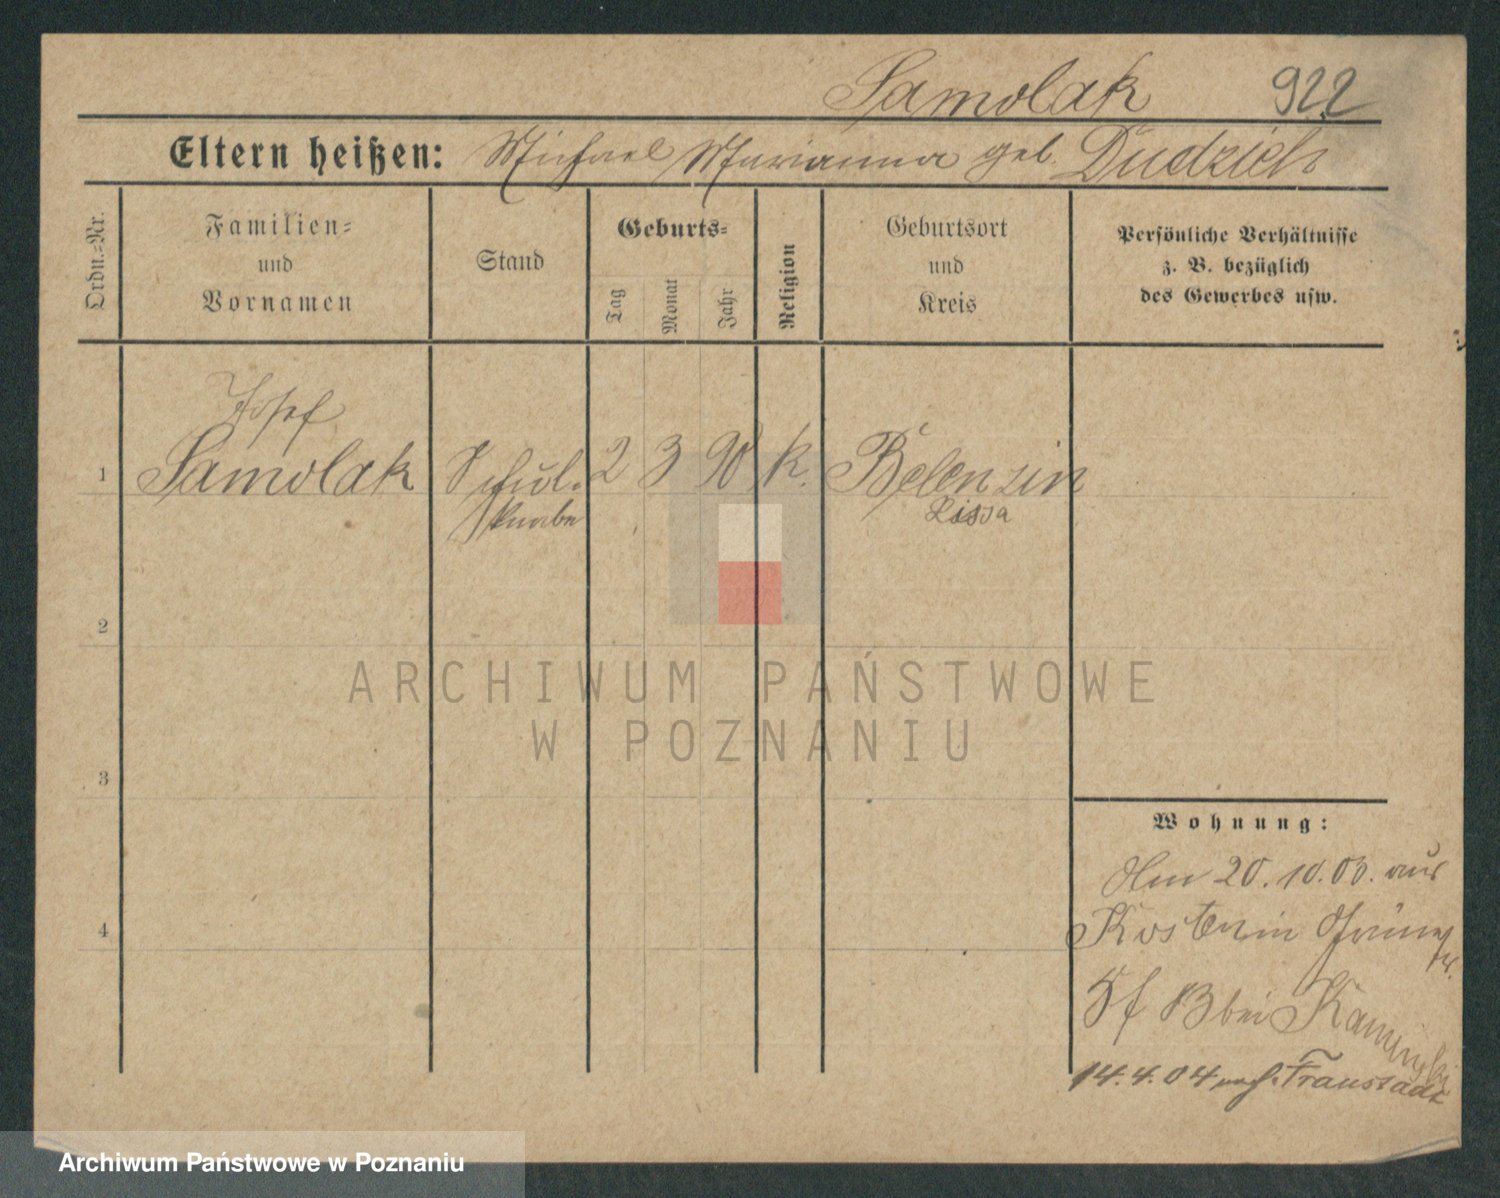 Samolak 922
Eltern heißen: Michael Marianna geb. Dudzich
Ordn.-Nr.
Familien-
und
Vornamen
Stand
Geburts-
Tag
Monat
Jahr
Religion
Geburtsort
und
Kreis
Persönliche Verhältnisse
z. B. bezüglich
des Gewerbes usw.
Josef
1 Samolak Schul- 2 3 90 k. Belenzin
knabe Lissa
2
ARCHIWUM PAŃSTWOWE
W POZNANIU
3
Wohnung:
20.10.03. aus
4
bei
14.4.04 nach Fraustadt
Archiwum Państwowe w Poznaniu